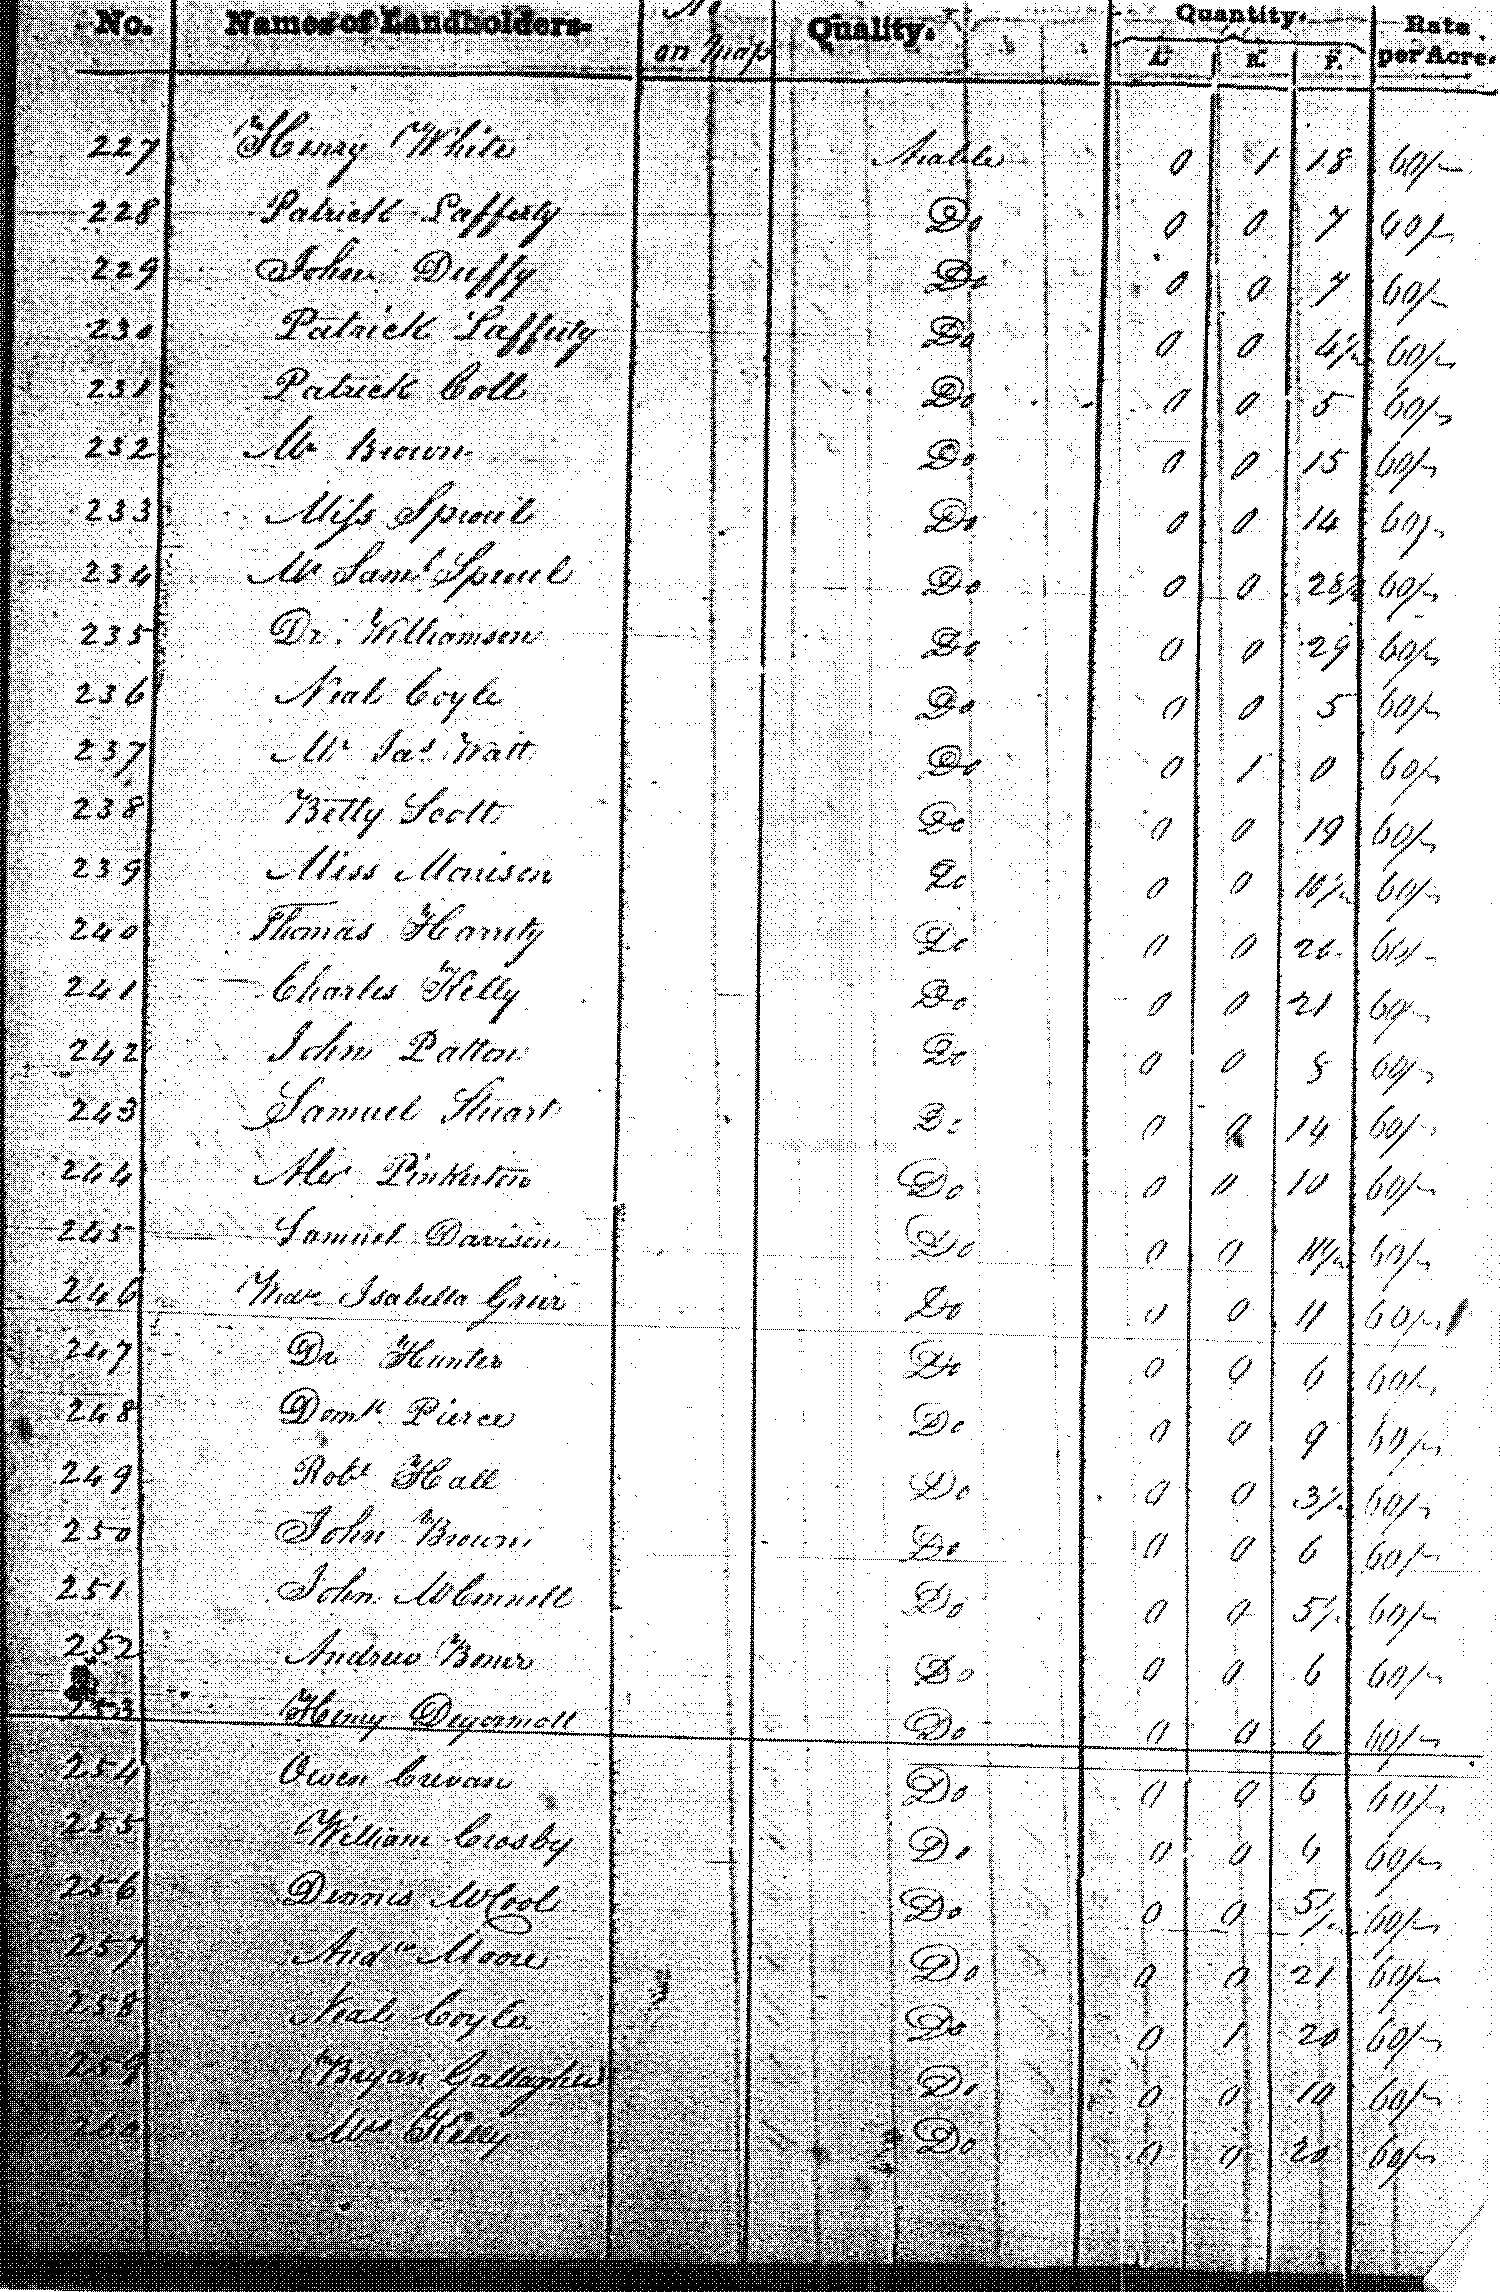 No. Names of Landholders. No on Map Quality. Quantity. Rate per Acre.
A. R. P.
227 Henry White Arable 0 1 18 60/-
228 Patrick Lafferty Do 0 0 7 60/-
229 John Duffy Do 0 0 7 60/-
230 Patrick Lafferty Do 0 0 4½ 60/-
231 Patrick Coll Do 0 0 5 60/-
232 Mr Brown Do 0 0 15 60/-
233 Miss Sproul Do 0 0 14 60/-
234 Mr Saml Sproul Do 0 0 28½ 60/-
235 Dr. Williamson Do 0 0 29 60/-
236 Neal Coyle Do 0 0 5 60/-
237 Mr Jas Watt Do 0 1 0 60/-
238 Betty Scott Do 0 0 19 60/-
239 Miss Morison Do 0 0 10½ 60/-
240 Thomas Harrity Do 0 0 26 60/-
241 Charles Kelly Do 0 0 21 60/-
242 John Patton Do 0 0 60/-
243 Samuel Stuart Do 0 0 14 60/-
244 Alex Pinkerton Do 0 0 10 60/-
245 Samuel Davison Do 0 0 11½ 60/-
246 Widw Isabella Grier Do 0 0 11 60/-
247 Dr Hunter Do 0 0 6 60/-
248 Domk Pierce Do 0 0 9 60/-
249 Robt Hall Do 0 0 3½ 60/-
250 John Brown Do 0 0 6 60/-
251 John McConnell Do 0 0 5½ 60/-
252 Andrew Boner Do 0 0 6 60/-
253 Henry Deyermott Do 0 0 6 60/-
254 Owen Crevan Do 0 0 6 60/-
255 William Crosby Do 0 0 60/-
256 Dennis McCool Do 0 0 5½ 60/-
257 Andw Moore Do 0 0 21 60/-
258 Neal Coyle Do 0 1 20 60/-
259 Bryan Gallagher Do 0 0 10 60/-
260 Kelly Do 0 0 20 60/-